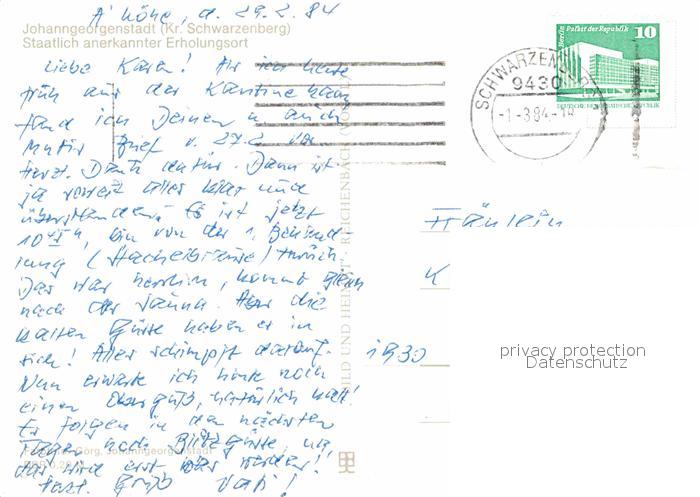 A'höhe, d. 29.2.84
Johanngeorgenstadt (Kr. Schwarzenberg)
Staatlich anerkannter Erholungsort
Liebe Karen! Als ich heute
früh aus der Kantine kam
fand ich Deinen u. auch
Brief v. 27.2. vor
herzl. Dank dafür. Dann ist
ja soweit alles klar und
überstanden. Es ist jetzt
10, bin von der 1. Behand-
lung zurück.
Das war herrlich, kommt gleich
nach der Sauna. Aber die
kalten Güsse haben es in
sich! Alles schimpft darauf.
Nun erwarte ich heute noch
einen Oberguß, natürlich kalt!
Es folgen in den nächsten
Tagen noch Blitzgüsse usw,
das wird erst was werden!
herzl. Gruß Vati!
Görg, Johanngeorgenstadt
BILD UND HEIMAT · REICHENBACH
SCHWARZENBERG
9430
-1.-3.84-
Berlin Palast der Republik
10
Fräulein
K
1930
privacy protection
Datenschutz